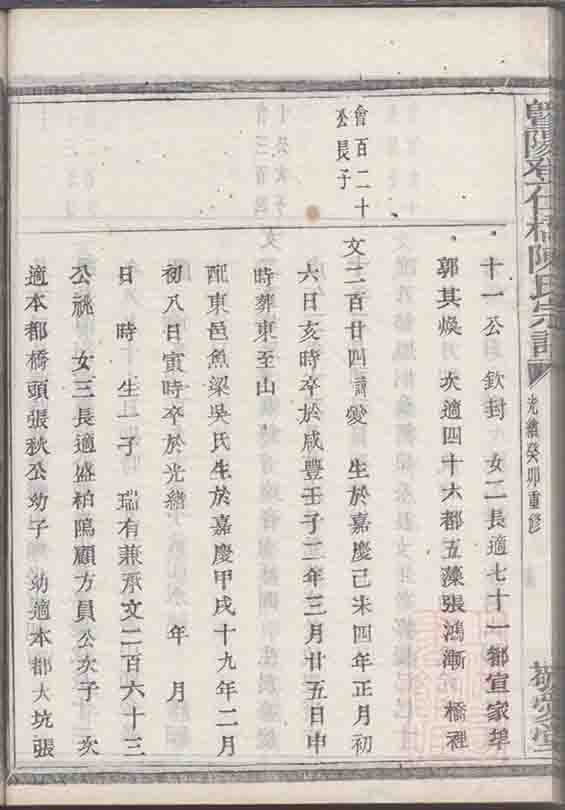 暨陽登仕橋陳氏宗譜
光緒癸卯重修
敬愛堂
十一公 欽封 女二長適七十一都宣家埠
郭其煥 次適四十六都五藻張鴻漸 橋裡
會百二十
公長子
文二百廿四諱愛 生於嘉慶己未四年正月初
六日亥時卒於咸豐壬子二年三月廿五日申
時葬東至山
配東邑魚梁吳氏生於嘉慶甲戌十九年二月
初八日寅時卒於光緒 年 月
日 時 生一子 瑞有兼承文二百六十三
公祧 女三長適盛柏隝顧方員公次子 次
適本都橋頭張秋公幼子 幼適本都大坑張